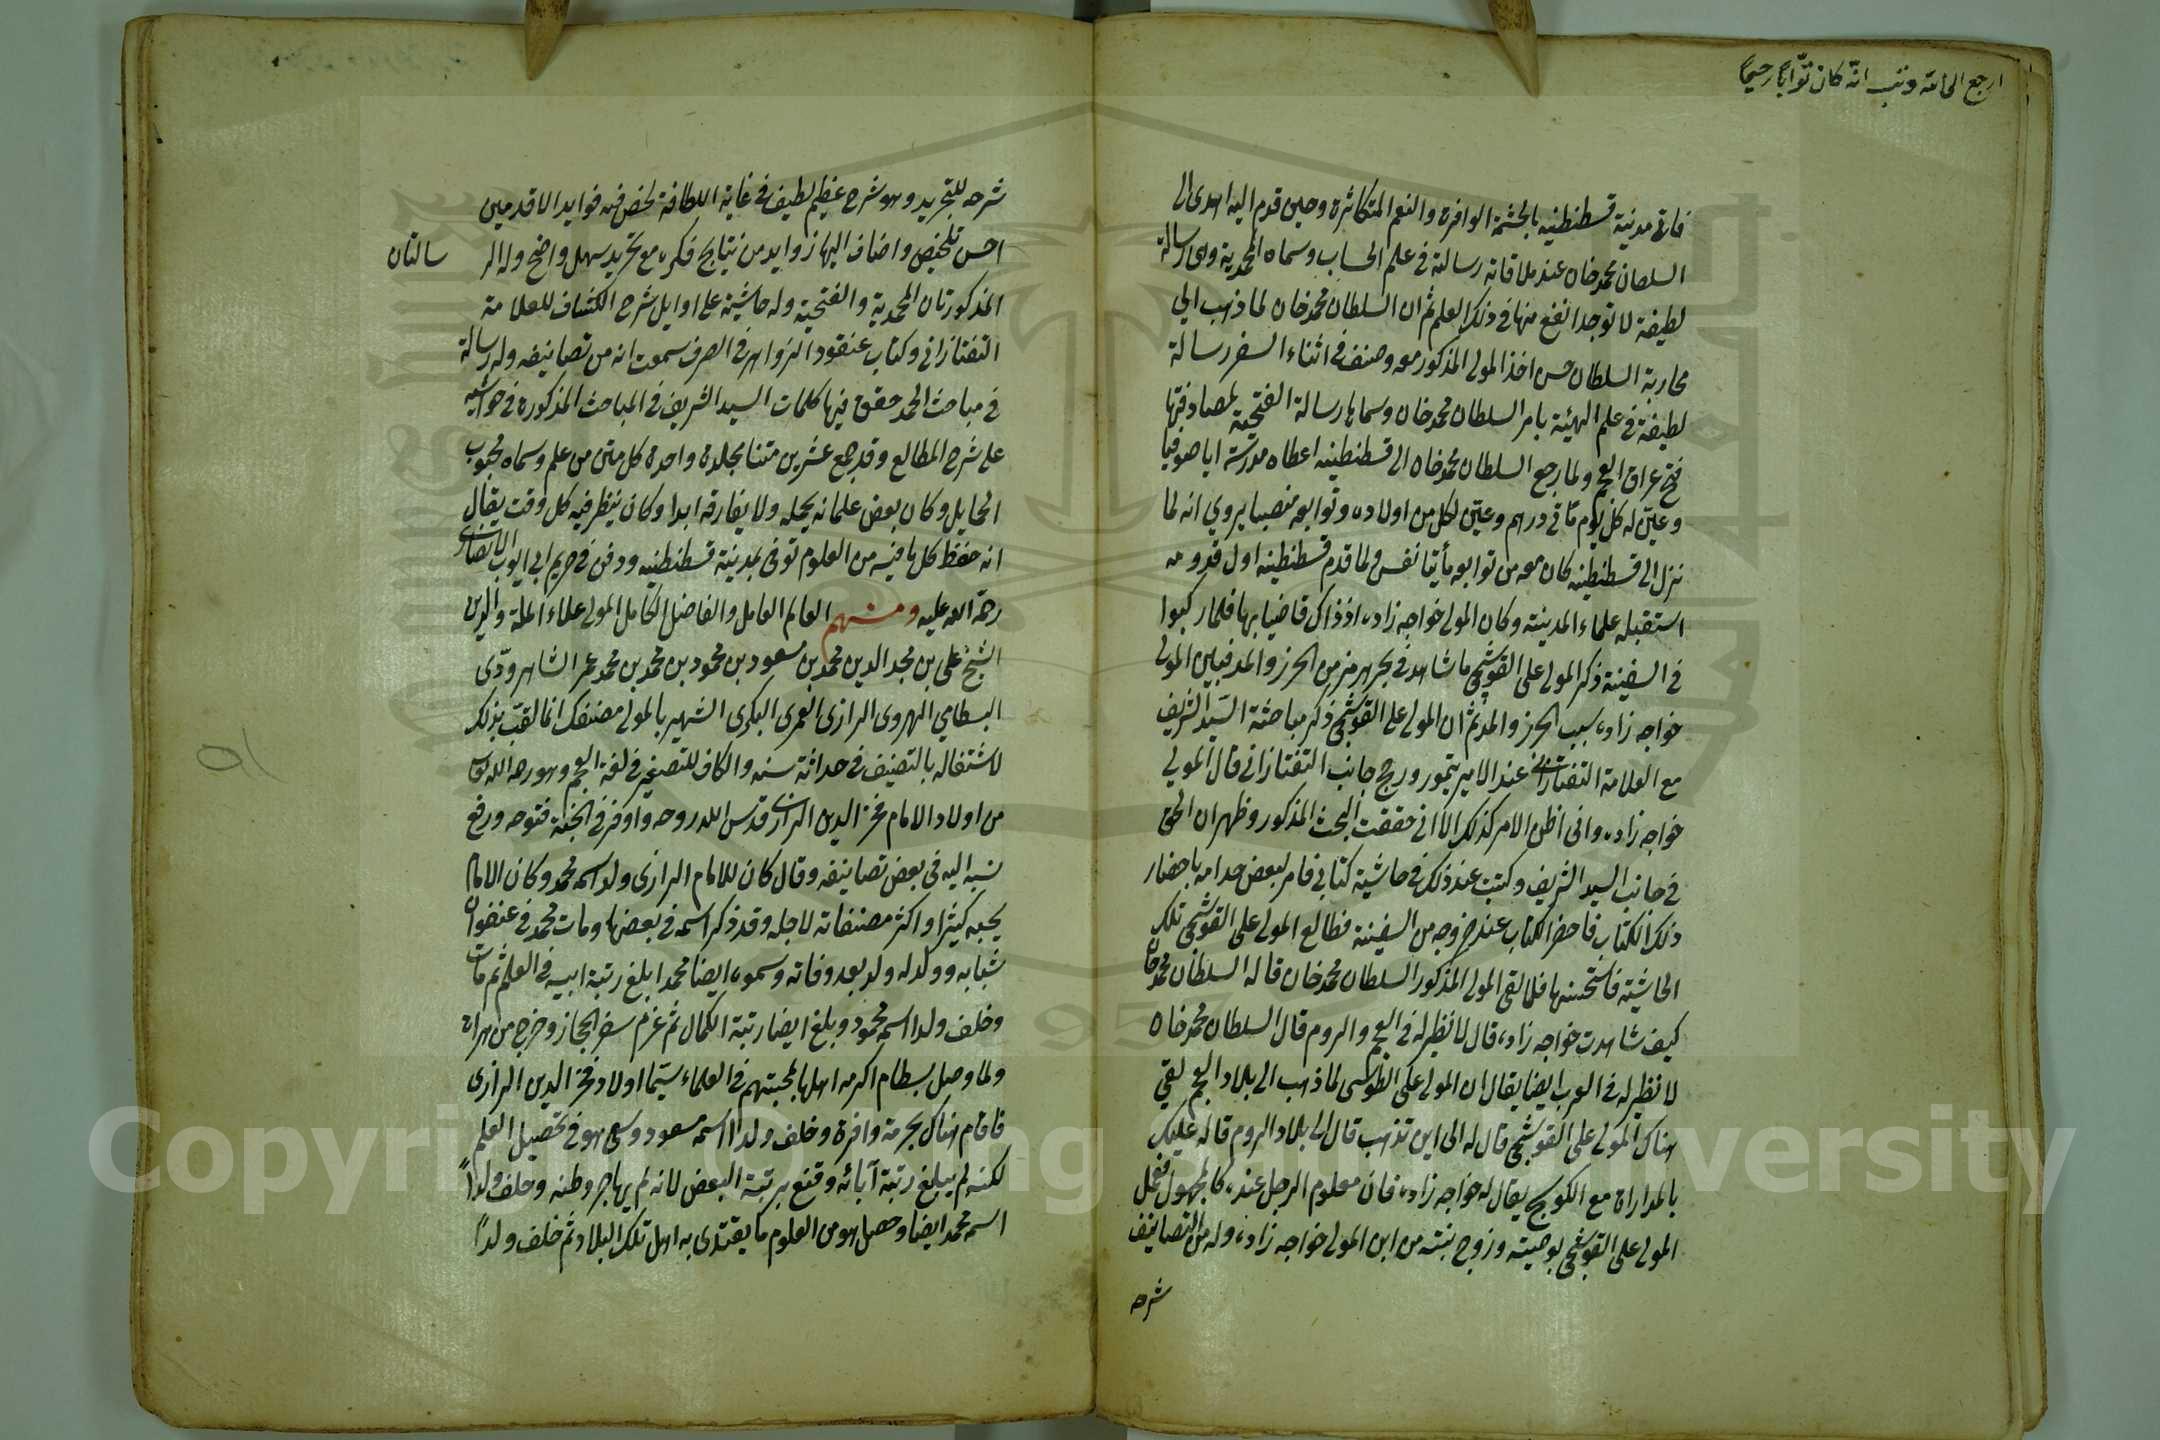 ارجع الى الله وتب انه كان توّاباً رحيماً
فاتى مدينة قسطنطينيه بالحشمة الوافرة والنعم المتكاثرة وحين قدم اليه اهدى الى
السلطان محمد خان عند ملاقاته رسالته في علم الحساب وسماه المحمدية وهى رسالة
لطيفة لا توجد انفع منها في ذلك العلم ثم ان السلطان محمد خان لما ذهب الى
محاربة السلطان حسن اخذ المولى المذكور معه وصنف في اثناء السفر رسالة
لطيفة في علم الهيئة بامر السلطان محمد خان وسماها رسالة الفتحية لمصادفتها
فتح عراق العجم ولما رجع السلطان محمد خان الى قسطنطينيه اعطاه مدرسة اياصوفيا
وعيّن له كل يوم مأتي درهم وعيّن لكل من اولاده وتوابعه منصبا يروي انه لما
نزل الى قسطنطينيه كان معه من توابعه مأيتا نفس ولما قدم قسطنطينيه اول قدومه
استقبله علماء المدينة وكان المولى خواجه زاده اذ ذاك قاضيا بها فلما ركبوا
في السفينة ذكر المولى على القوشجى ما شاهد في بحر هرمز من الجزر والمد فبين المولى
خواجه زاده سبب الجزر والمد ثم ان المولى على القوشجى ذكر مباحثة السيد الشريف
مع العلامة التفتازانى عند الامير تيمور ورجح جانب التفتازاني قال المولي
خواجه زاده وانى اظن الامر كذلك الا انى حققت البحث المذكور وظهر ان الحق
في جانب السيد الشريف وكتبت عند ذلك في حاشية كتابي فامر لبعض خدامه باحضار
ذلك الكتاب فاحضر الكتاب عند خروجه من السفينة فطالع المولى على القوشجى تلك
الحاشية فاستحسنها فلما لقى المولى المذكور السلطان محمد خان قال له السلطان محمد خان
كيف شاهدت خواجه زاده قال لا نظير له في العجم والروم قال السلطان محمد خان
لا نظير له في العرب ايضا يقال ان المولى على الطوسى لما ذهب الى بلاد العجم لقي
هناك المولى على القوشجى قال له الى اين تذهب قال الى بلاد الروم قال له عليك
بالمداراة مع الكوسج يقال له خواجه زاده فان معلوم الرجل عنده كالمجهول فعمل
المولى على القوشجى بوصيته وزوج بنته من ابن المولى خواجه زاده وله من التصانيف
شرحه
شرحه للتجريد وهو شرح عظيم لطيف في غاية اللطافة لخص فيه فوايد الاقدمين
احسن تلخيص واضاف اليها زوايد من نتايج فكره مع تحرير سهل واضح وله الر سالتان
المذكورتان المحمدية والفتحية وله حاشية على اوايل شرح الكشاف للعلامة
التفتازاني وكتاب عنقود الزواهر في الصرف سمعت انه من تصانيفه وله رسالة
في مباحث الحمد حقق فيها كلمات السيد الشريف في المباحث المذكورة في حواشيه
على شرح المطالع وقد جمع عشرين متنا مجلدة واحدة كل متن من علم وسماه محبوب
الحمايل وكان بعض غلمانه يحمله ولا يفارقه ابدا وكان ينظر فيه كل وقت يقال
انه حفظ كل ما فيه من العلوم توفى بمدينة قسطنطينيه ودفن في حريم ابى ايوب الانصارى
رحمة الله عليه ومنهم العالم العامل والفاضل الكامل المولى علاء الملة والدين
الشيخ على بن مجد الدين محمد بن مسعود بن محمود بن محمد بن محمد عمر الشاهرودى
البسطامي الهروى الرازى العمرى البكرى الشهير بالمولى مصنفك انما لقب بذلك
لاشتغاله بالتصنيف في حداثة سنه والكاف للتصغير في لغة العجم وهو رحمه الله كان
من اولاد الامام فخر الدين الرازى قدس الله روحه واوفر في الجنة فتوحه ورفع
نسبه اليه في بعض تصانيفه وقال كان للامام الرازى ولد اسمه محمد وكان الامام
يحبه كثيرا واكثر مصنفاته لاجله وقد ذكر اسمه في بعضها ومات محمد في عنفوان
شبابه وولد له ولد بعد وفاته وسموه ايضا محمدا بلغ رتبة ابيه في العلم ثم مات
وخلف ولدا اسمه محمود وبلغ ايضا رتبة الكمال ثم عزم سفر الحجاز وخرج من هراة
ولما وصل بسطام اكرمه اهلها لمحبتهم في العلماء سيما اولاد فخر الدين الرازى
فاقام هناك بحرمة وافرة وخلف ولدا اسمه مسعود وسعى هو في تحصيل العلم
لكنه لم يبلغ رتبة آبائه وقنع برتبة البعض لانه لم يهاجر وطنه وخلف ولداً
اسمه محمد ايضا وحصل هو من العلوم ما يقتدى به اهل تلك البلاد ثم خلف ولداً
Copyright © King Saud University